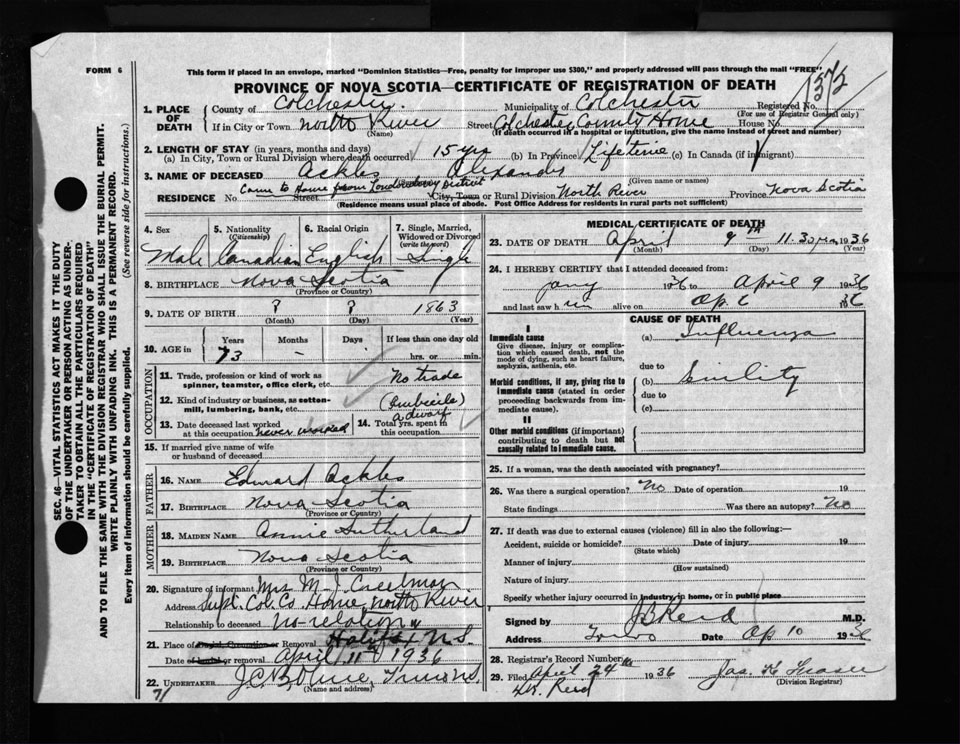 FORM 6
This form if placed in an envelope, marked "Dominion Statistics—Free, penalty for improper use $300," and properly addressed will pass through the mail "FREE"
PROVINCE OF NOVA SCOTIA—CERTIFICATE OF REGISTRATION OF DEATH
1. PLACE OF DEATH
County of Colchester. Municipality of Colchester Registered No.
(For use of Registrar General only)
If in City or Town North River Street Colchester County Home House No.
(Name) (If death occurred in a hospital or institution, give the name instead of street and number)
2. LENGTH OF STAY (in years, months and days)
(a) In City, Town or Rural Division where death occurred) 15 yrs (b) In Province Lifetime (c) In Canada (if immigrant)
3. NAME OF DECEASED Ackles Alexander
(Given name or names)
Came to Home from Londonderry District
RESIDENCE No. Street City, Town or Rural Division North River Province Nova Scotia
(Residence means usual place of abode. Post Office Address for residents in rural parts not sufficient)
4. Sex 5. Nationality (Citizenship) 6. Racial Origin 7. Single, Married, Widowed or Divorced (write the word)
Male Canadian English Single
8. BIRTHPLACE Nova Scotia
(Province or Country)
9. DATE OF BIRTH ? ? 1863
(Month) (Day) (Year)
10. AGE in Years Months Days If less than one day old
73 - - hrs. or min.
OCCUPATION
11. Trade, profession or kind of work as spinner, teamster, office clerk, etc. No trade
12. Kind of industry or business, as cotton-mill, lumbering, bank, etc. (Imbecile)
a dwarf
13. Date deceased last worked at this occupation never worked 14. Total yrs. spent in this occupation
15. If married give name of wife or husband of deceased
FATHER
16. NAME Edward Ackles
17. BIRTHPLACE Nova Scotia
(Province or Country)
MOTHER
18. MAIDEN NAME Annie Sutherland
19. BIRTHPLACE Nova Scotia
(Province or Country)
20. Signature of informant Mrs M. J. Creelman
Address Supt. Col. Co. Home, North River
Relationship to deceased no-relation
21. Place of Burial, Cremation or Removal Halifax N.S.
Date of burial or removal April 11 1936
22. UNDERTAKER
(Name and address)
71
MEDICAL CERTIFICATE OF DEATH
23. DATE OF DEATH April 9th 11.30 1936
(Month) (Day) (Year)
24. I HEREBY CERTIFY that I attended deceased from:
Jany 1936 to April 9 1936
and last saw h im alive on Ap 6 1936
CAUSE OF DEATH
I
Immediate cause
Give disease, injury or complication which caused death, not the mode of dying, such as heart failure, asphyxia, asthenia, etc.
(a) Influenza
due to
Morbid conditions, if any, giving rise to immediate cause (stated in order proceeding backwards from immediate cause).
(b) Senility
due to
(c)
II
Other morbid conditions (if important) contributing to death but not causally related to immediate cause.
25. If a woman, was the death associated with pregnancy?
26. Was there a surgical operation? No Date of operation 19
State findings Was there an autopsy? No
27. If death was due to external causes (violence) fill in also the following:—
Accident, suicide or homicide? Date of injury 19
(State which)
Manner of injury
(How sustained)
Nature of injury
Specify whether injury occurred in industry, in home, or in public place
Signed by J B Reid M.D.
Address Truro Date Ap 10 1936
28. Registrar's Record Number
29. Filed April 24th 1936 Jas. H Fraser
(Division Registrar)
Dr. Reid
SEC. 46—VITAL STATISTICS ACT MAKES IT THE DUTY OF THE UNDERTAKER OR PERSON ACTING AS UNDERTAKER TO OBTAIN ALL THE PARTICULARS REQUIRED IN THE "CERTIFICATE OF REGISTRATION OF DEATH" AND TO FILE THE SAME WITH THE DIVISION REGISTRAR WHO SHALL ISSUE THE BURIAL PERMIT.
WRITE PLAINLY WITH UNFADING INK. THIS IS A PERMANENT RECORD.
Every item of information should be carefully supplied. (See reverse side for instructions.)